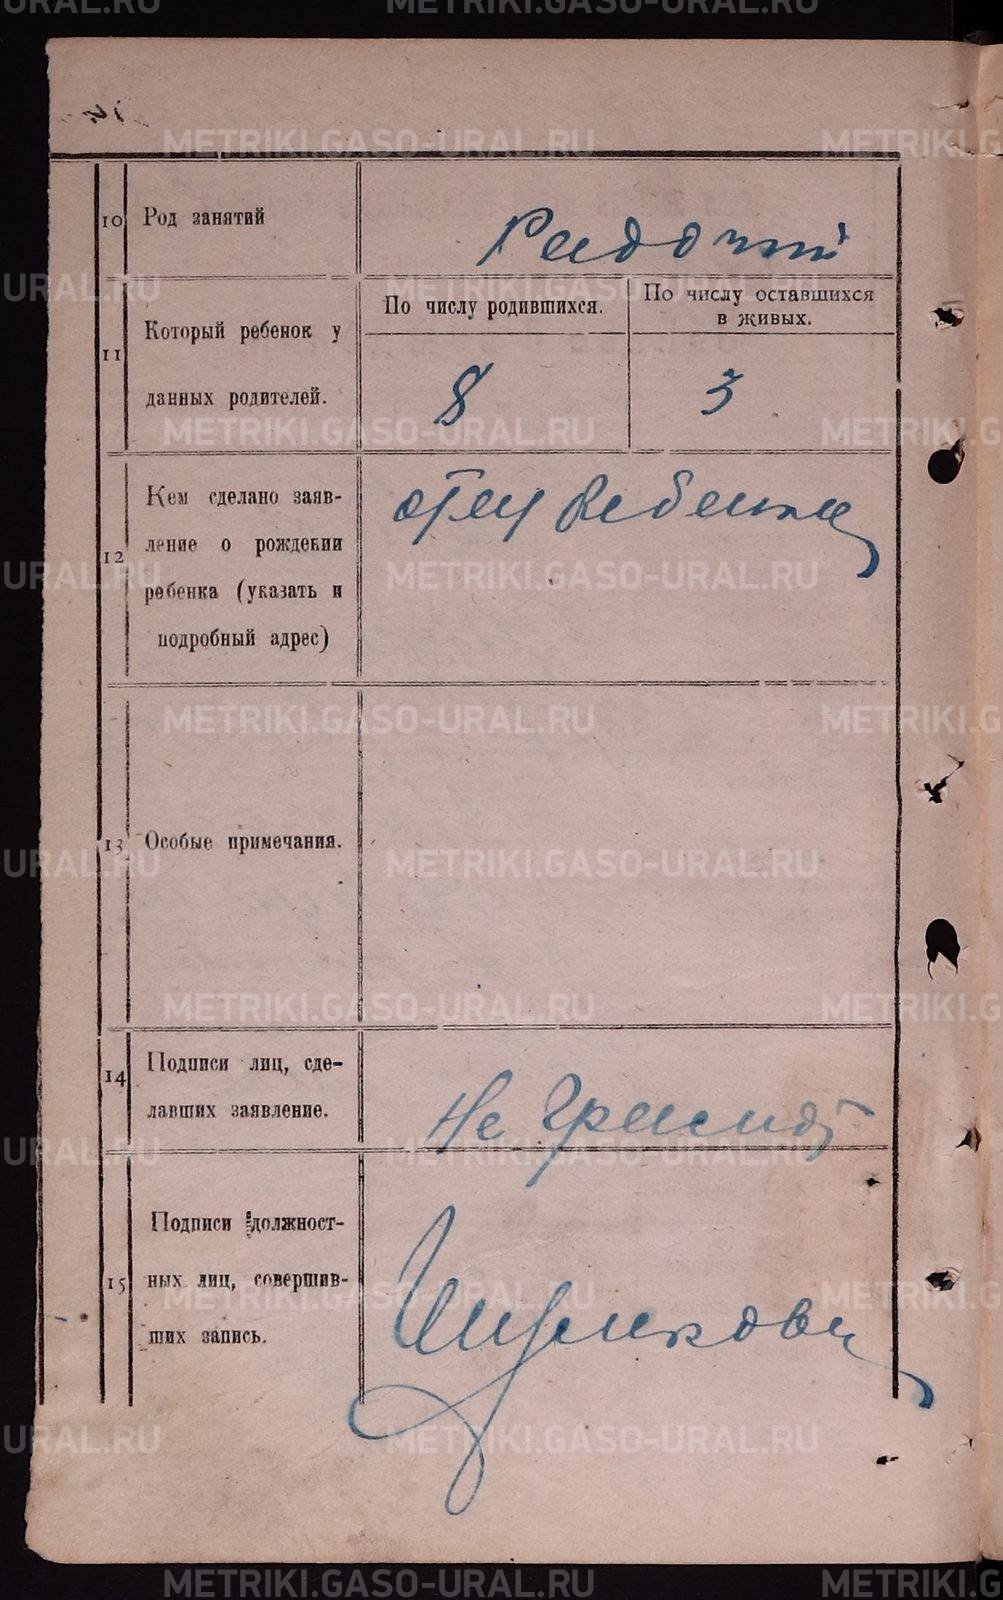 10 Род занятий
Рабочий
11 Который ребенок у
данных родителей.
По числу родившихся.
По числу оставшихся
в живых.
8
3
12 Кем сделано заяв-
ление о рождении
ребенка (указать и
подробный адрес)
отец Ребенка
13 Особые примечания.
14 Подписи лиц, сде-
лавших заявление.
Не Грамот
15 Подписи должност-
ных лиц, совершив-
ших запись.
METRIKI.GASO-URAL.RU